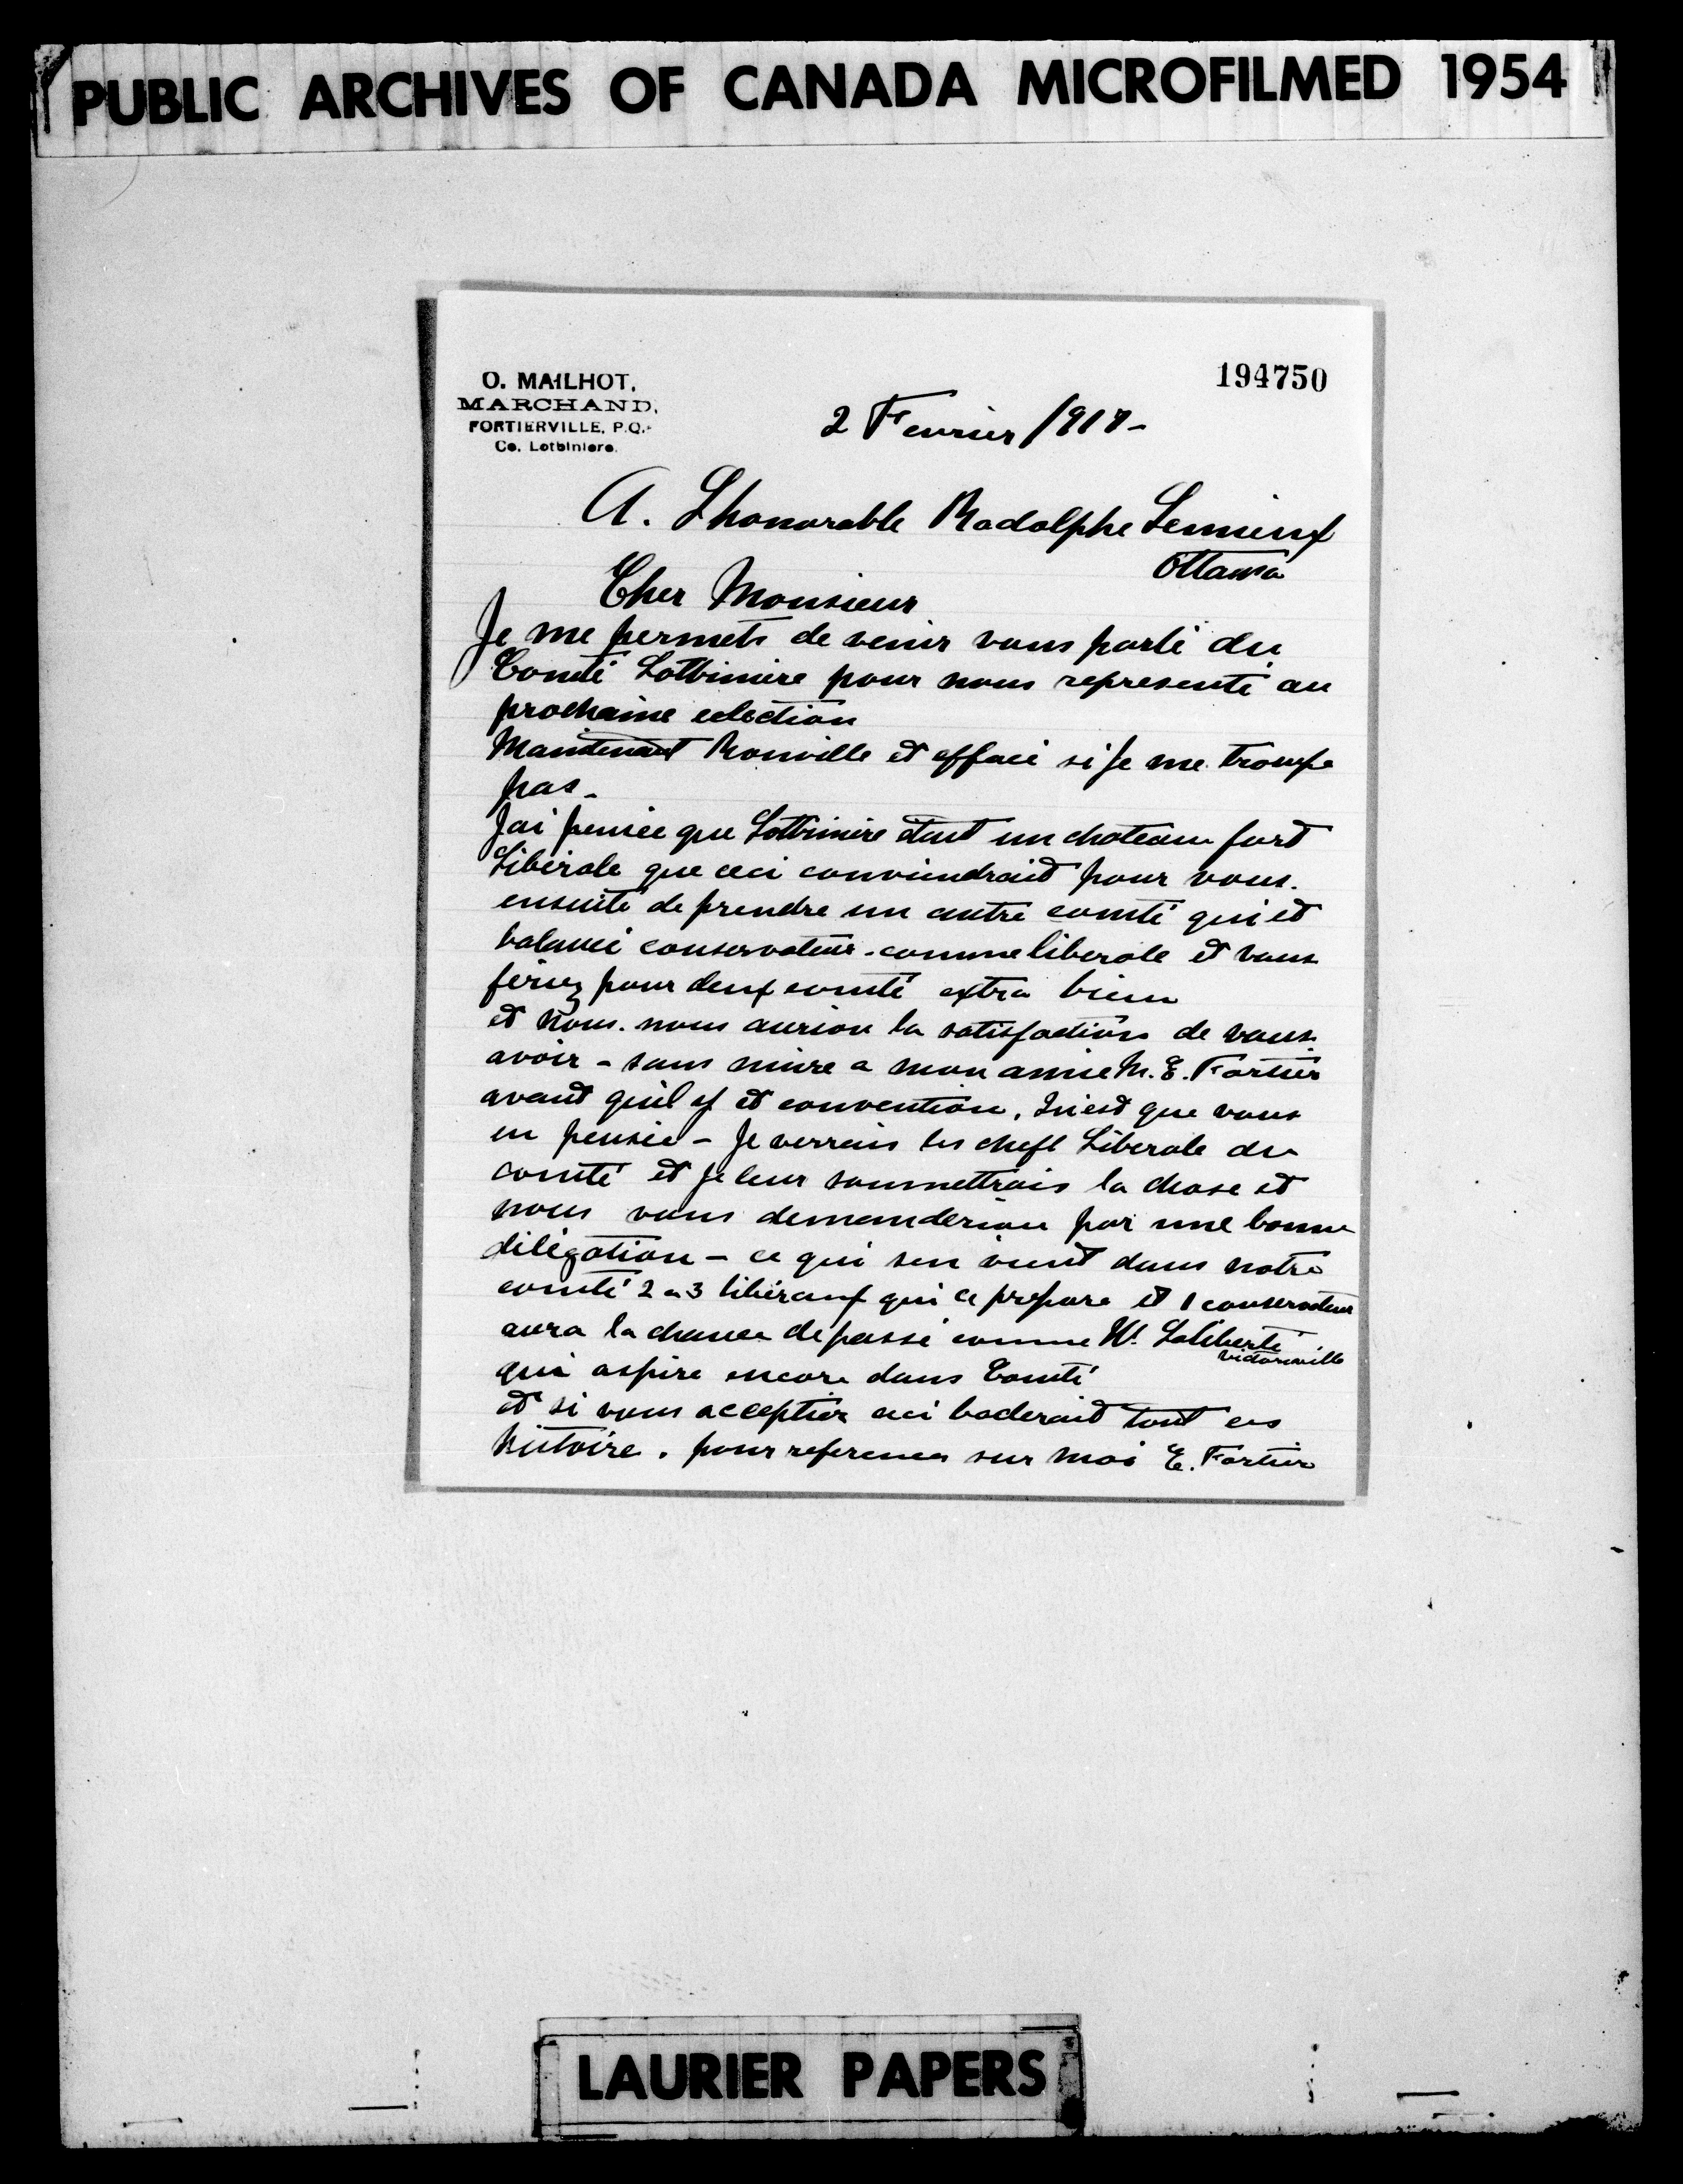 PUBLIC ARCHIVES OF CANADA MICROFILMED 1954
194750
O. MAILHOT,
MARCHAND,
FORTIERVILLE, P.Q.
Co. Lotbiniere.
2 Fevrier 1917-
A. Lhonorable Rodolphe Lemieux
Ottawa
Cher Monsieur
Je me permets de venir vous parlé du
Comté Lotbiniere pour nous representé au
prochaine election
Maintenant Rouville et effacé si je me trompe
pas-
Jai pensée que Lotbiniere étant un chateau fort
Libérale que ceci conviendrait pour vous.
ensuite de prendre un autre comté qui et
balancé conservateur-comme liberale et vous
feriez pour deux comté extra bien
et nous. nous aurion la satisfaction de vous
avoir - sans nuire a mon amie M. E. Fortier
avant quil y et convention, Quest que vous
en pensée - Je verrais les chefs Libérale du
comté et je leur soumettrais la chose et
nous vous demanderion par une bonne
déligation - ce qui sen vient dans notre
comté 2 a 3 libéraux qui ce prepare et 1 conservateur
aura la chance de passé comme W. Laliberté
Victoriaville
qui aspire encore dans Comté
et si vous acceptier ceci baclerait tout ces
histoire. pour references sur moi E. Fortier
LAURIER PAPERS